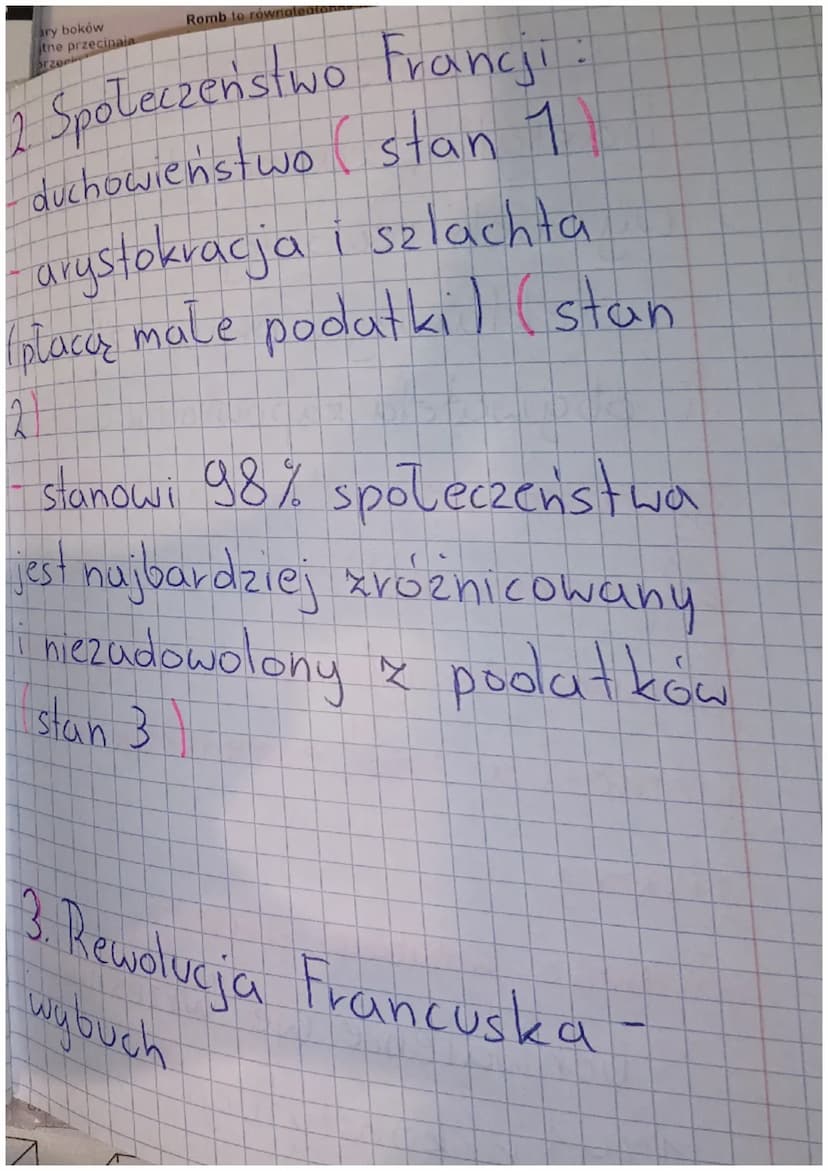 ary boków
tne przecinają
Romb to równoległobok
2. Społeczeństwo Francji:
- duchowieństwo (stan 1)
- arystokracja i szlachta
(płacą małe podatki) (stan
2)
- stanowi 98% społeczeństwa
jest najbardziej zróżnicowany
i niezadowolony z podatków
(stan 3)
3. Rewolucja Francuska -
wybuch